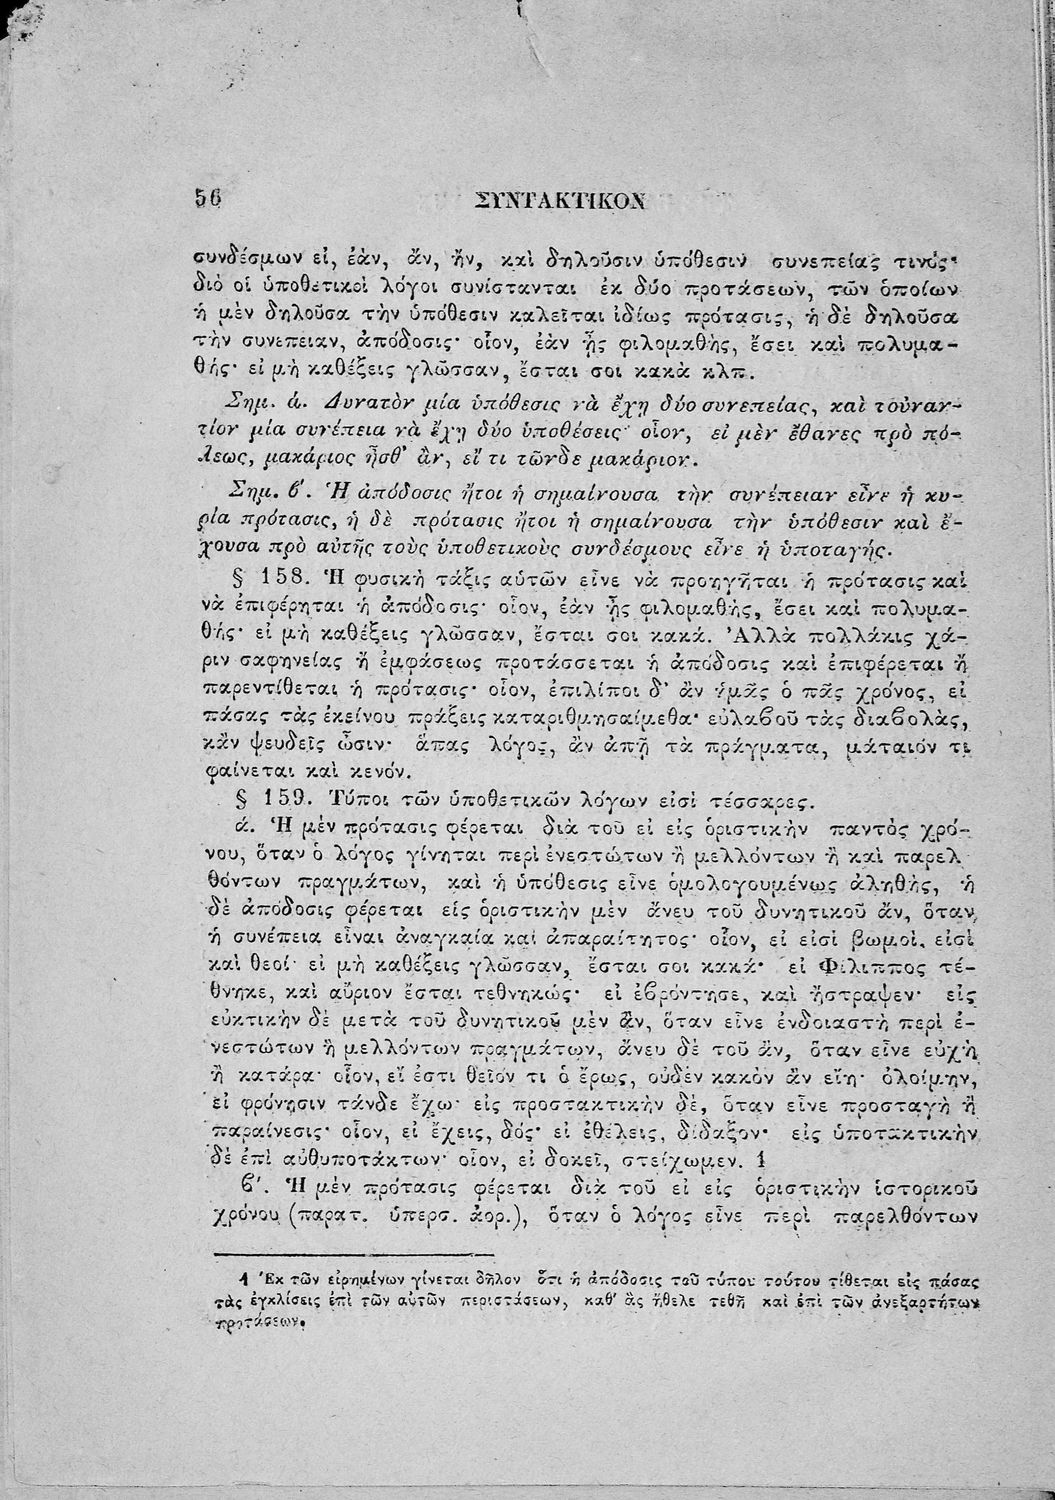 56 ΣΥΝΤΑΚΤΙΚΟΝ
συνδέσμων εἰ, ἐὰν, ἄν, ἤν, καὶ δηλοῦσιν ὑπόθεσιν συνεπείας τινός·
διὸ οἱ ὑποθετικοὶ λόγοι συνίστανται ἐκ δύο προτάσεων, τῶν ὁποίων
ἡ μὲν δηλοῦσα τὴν ὑπόθεσιν καλεῖται ἰδίως πρότασις, ἡ δὲ δηλοῦσα
τὴν συνέπειαν, ἀπόδοσις· οἷον, ἐὰν ᾖς φιλομαθὴς, ἔσει καὶ πολυμα-
θής· εἰ μὴ καθέξεις γλῶσσαν, ἔσται σοι κακὰ κλπ.
Σημ. ά. Δυνατὸν μία ὑπόθεσις νὰ ἔχῃ δύο συνεπείας, καὶ τοὐναν-
τίον μία συνέπεια νὰ ἔχῃ δύο ὑποθέσεις· οἷον, εἰ μὲν ἔθανες πρὸ πό-
λεως, μακάριος ἦσθ' ἂν, εἴ τι τῶνδε μακάριον.
Σημ. ϐ'. Ἡ ἀπόδοσις ἤτοι ἡ σημαίνουσα τὴν συνέπειαν εἶνε ἡ κυ-
ρία πρότασις, ἡ δὲ πρότασις ἤτοι ἡ σημαίνουσα τὴν ὑπόθεσιν καὶ ἔ-
χουσα πρὸ αὐτῆς τοὺς ὑποθετικοὺς συνδέσμους εἶνε ἡ ὑποταγής.
§ 158. Ἡ φυσικὴ τάξις αὐτῶν εἶνε νὰ προηγῆται ἡ πρότασις καὶ
νὰ ἐπιφέρηται ἡ ἀπόδοσις· οἷον, ἐὰν ᾖς φιλομαθὴς, ἔσει καὶ πολυμα-
θής· εἰ μὴ καθέξεις γλῶσσαν, ἔσται σοι κακά. Ἀλλὰ πολλάκις χά-
ριν σαφηνείας ἢ ἐμφάσεως προτάσσεται ἡ ἀπόδοσις καὶ ἐπιφέρεται ἢ
παρεντίθεται ἡ πρότασις· οἷον, ἐπιλίποι δ' ἂν ἡμᾶς ὁ πᾶς χρόνος, εἰ
πάσας τὰς ἐκείνου πράξεις καταριθμησαίμεθα· εὐλαϐοῦ τὰς διαϐολὰς,
κἂν ψευδεῖς ὦσιν· ἅπας λόγος, ἂν ἀπῇ τὰ πράγματα, μάταιόν τι
φαίνεται καὶ κενόν.
§ 159. Τύποι τῶν ὑποθετικῶν λόγων εἰσὶ τέσσαρες.
ά. Ἡ μὲν πρότασις φέρεται διὰ τοῦ εἰ εἰς ὁριστικὴν παντὸς χρό-
νου, ὅταν ὁ λόγος γίνηται περὶ ἐνεστώτων ἢ μελλόντων ἢ καὶ παρελ
θόντων πραγμάτων, καὶ ἡ ὑπόθεσις εἶνε ὁμολογουμένως ἀληθὴς, ἡ
δὲ ἀπόδοσις φέρεται εἰς ὁριστικὴν μὲν ἄνευ τοῦ δυνητικοῦ ἂν, ὅταν
ἡ συνέπεια εἶναι ἀναγκαία καὶ ἀπαραίτητος· οἷον, εἰ εἰσὶ βωμοὶ, εἰσὶ
καὶ θεοί· εἰ μὴ καθέξεις γλῶσσαν, ἔσται σοι κακά· εἰ Φίλιππος τέ-
θνηκε, καὶ αὔριον ἔσται τεθνηκώς· εἰ ἐϐρόντησε, καὶ ἤστραψεν· εἰς
εὐκτικὴν δὲ μετὰ τοῦ δυνητικοῦ μὲν ἂν, ὅταν εἶνε ἐνδοιαστὴ περὶ ἐ-
νεστώτων ἢ μελλόντων πραγμάτων, ἄνευ δὲ τοῦ ἂν, ὅταν εἶνε εὐχὴ
ἢ κατάρα· οἷον, εἴ ἐστι θεῖόν τι ὁ ἔρως, οὐδὲν κακὸν ἂν εἴη· ὀλοίμην,
εἰ φρόνησιν τάνδε ἔχω· εἰς προστακτικὴν δὲ, ὅταν εἶνε προσταγὴ ἢ
παραίνεσις· οἷον, εἰ ἔχεις, δός· εἰ ἐθέλεις, δίδαξον· εἰς ὑποτακτικὴν
δὲ ἐπὶ αὐθυποτάκτων· οἷον, εἰ δοκεῖ, στείχωμεν. 1
ϐ'. Ἡ μὲν πρότασις φέρεται διὰ τοῦ εἰ εἰς ὁριστικὴν ἱστορικοῦ
χρόνου (παρατ. ὑπερσ. ἀορ.), ὅταν ὁ λόγος εἶνε περὶ παρελθόντων
1 Ἐκ τῶν εἰρημένων γίνεται δῆλον ὅτι ἡ ἀπόδοσις τοῦ τύπου τούτου τίθεται εἰς πάσας
τὰς ἐγκλίσεις ἐπὶ τῶν αὐτῶν περιστάσεων, καθ' ἃς ἤθελε τεθῆ καὶ ἐπὶ τῶν ἀνεξαρτήτων
προτάσεων.